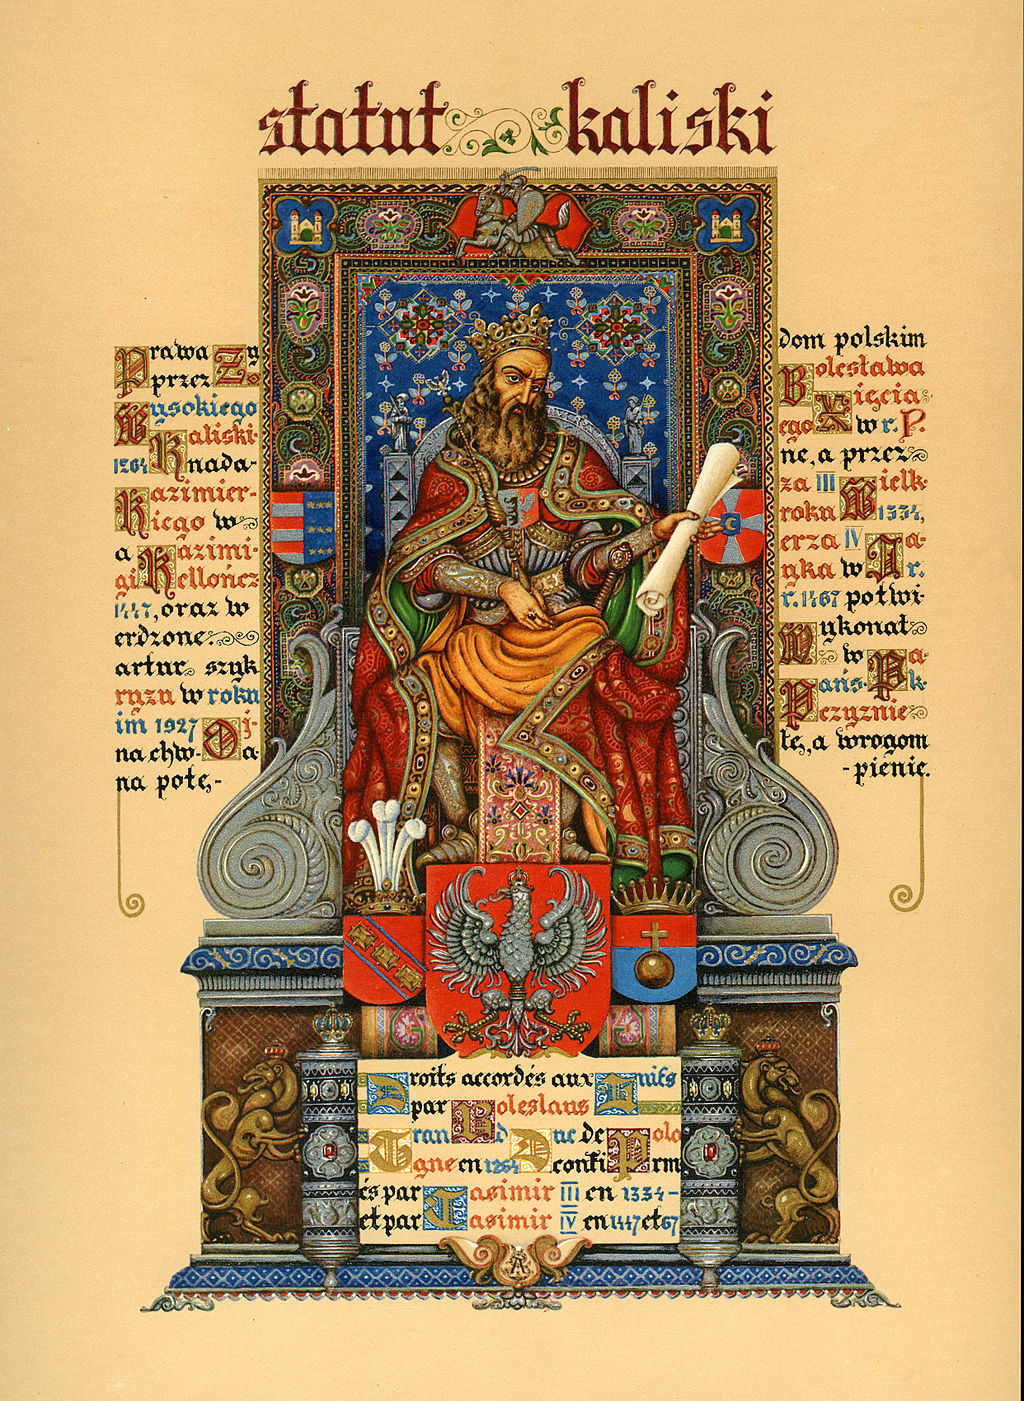 statut kaliski
Prawa Ży dom polskim
przez Bolesława
Wysokiego Xięcia
Kaliski- ego w r. P.
1264 nada- ne, a przez
Kazimier- za III Wielk-
iego w roku 1334,
a Kazimi- erza IV Ja-
giellończ yka w r.
1447, oraz w r. 1467 potwi-
erdzone: Wykonał
artur szyk w Pa-
ryzu w roku Pańsk-
im 1927 Oj- czyznie
na chwa- łę, a wrogom
na potę,- -pienie.
Droits accordés aux Juifs
par Boleslaus
Grand Duc de Polo
gne en 1264 Confirm
és par Casimir III en 1334-
et par Casimir IV en 1447 et 67